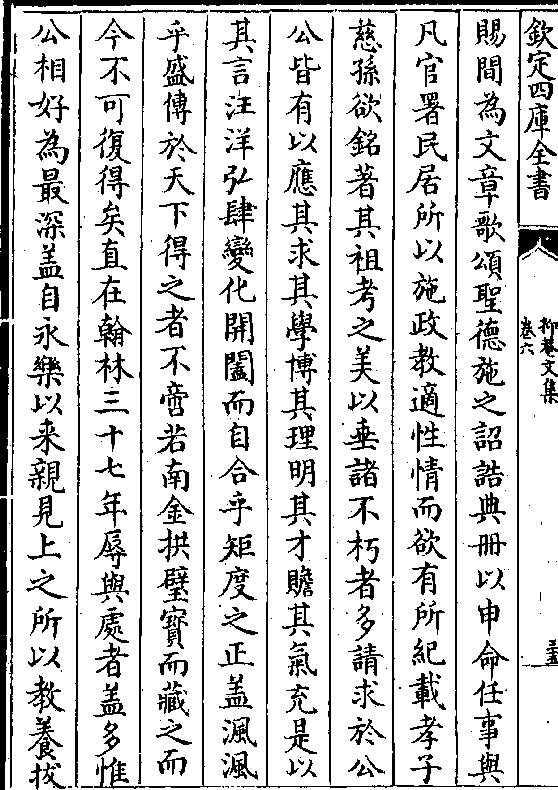 欽定四庫全書
抑菴文集
卷六
三五
賜間為文章歌頌聖德施之詔誥典冊以申命任事與
凡官署民居所以施政教適性情而欲有所紀載孝子
慈孫欲銘著其祖考之美以垂諸不朽者多請求於公
公皆有以應其求其學博其理明其才贍其氣充是以
其言汪洋弘肆變化開闔而自合乎矩度之正盖渢渢
乎盛傳於天下得之者不啻若南金拱璧寳而藏之而
今不可復得矣直在翰林三十七年辱與處者盖多惟
公相好為最深盖自永樂以来親見上之所以教養拔